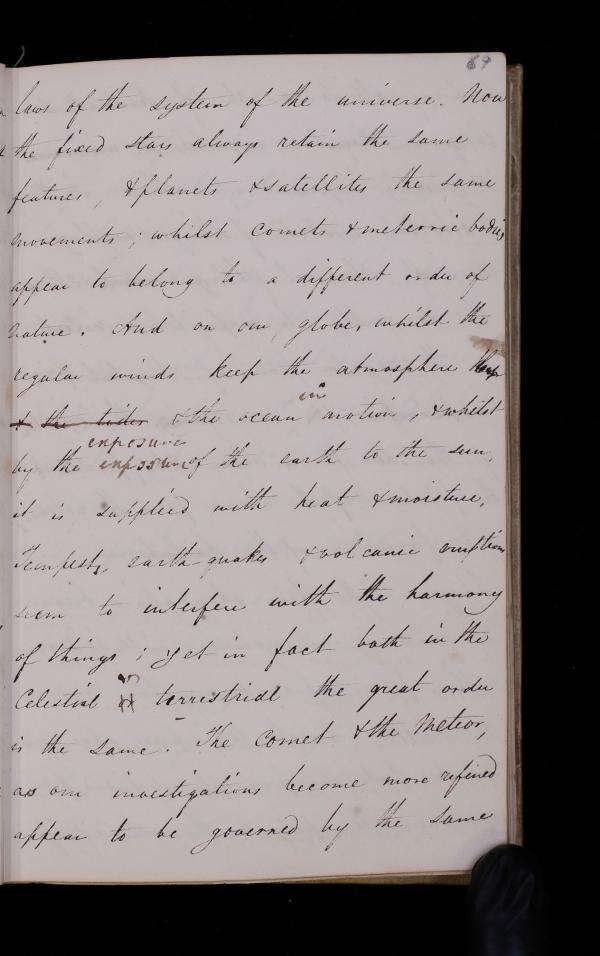 69
laws of the system of the universe. Now
the fixed stars always retain the same
features, & planets & satellites the same
movements; whilst comets & meteoric bodies
appear to belong to a different order of
nature. And on our globe, whilst the
regular winds keep the atmosphere
& the tides & the ocean in motion, & whilst
exposure
by the exposure of the earth to the sun,
it is supplied with heat & moisture,
Tempests, earthquakes & volcanic eruptions
seem to interfere with the harmony
of things; yet in fact both in the
Celestial & terrestrial the great order
is the same. The Comet & the Meteor,
as our investigations become more refined
appear to be governed by the same